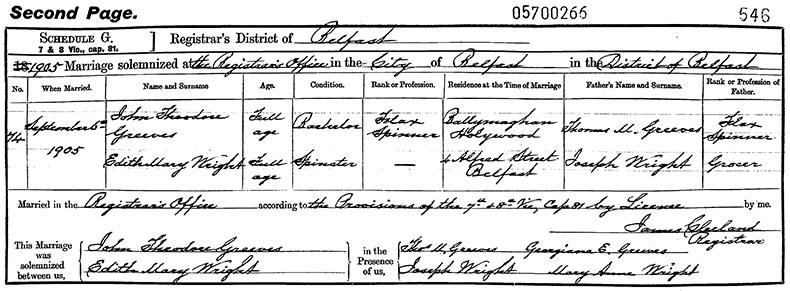 Second Page. 05700266 546
SCHEDULE G. 7 & 8 Vic., cap. 81. Registrar's District of Belfast
1905 Marriage solemnized at the Registrar's Office in the City of Belfast in the District of Belfast
No. When Married. Name and Surname Age. Condition. Rank or Profession. Residence at the Time of Marriage Father's Name and Surname. Rank or Profession of Father.
74 September 5th 1905 John Theodore Greeves Full age Bachelor Flax Spinner Ballymaghan Holywood Thomas M. Greeves Flax Spinner
Edith Mary Wright Full age Spinster — 4 Alfred Street Belfast Joseph Wright Grocer
Married in the Registrar's Office according to the Provisions of the 7th & 8th Vic, Cap 81 by License by me.
James Cleland
Registrar
This Marriage was solemnized between us, John Theodore Greeves Edith Mary Wright in the Presence of us, Thos M. Greeves Georgiana E. Greeves Joseph Wright Mary Anne Wright